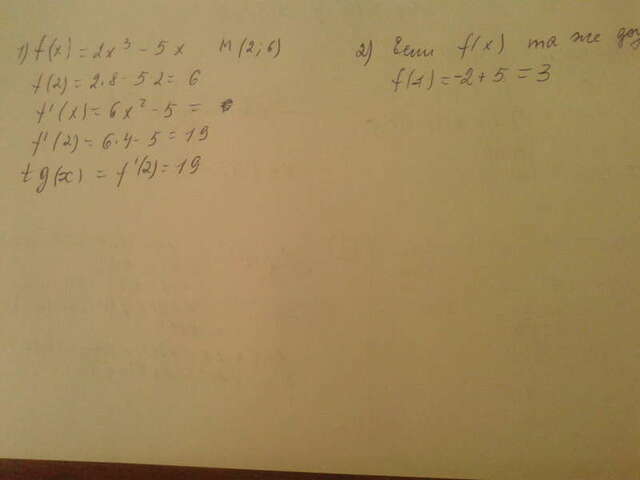 1) f(x) = 2x³ - 5x M(2; 6)
f(2) = 2·8 - 5·2 = 6
f'(x) = 6x² - 5 =
f'(2) = 6·4 - 5 = 19
tg(x) = f'(2) = 19
2) Если f(x) та же
f(-1) = -2 + 5 = 3